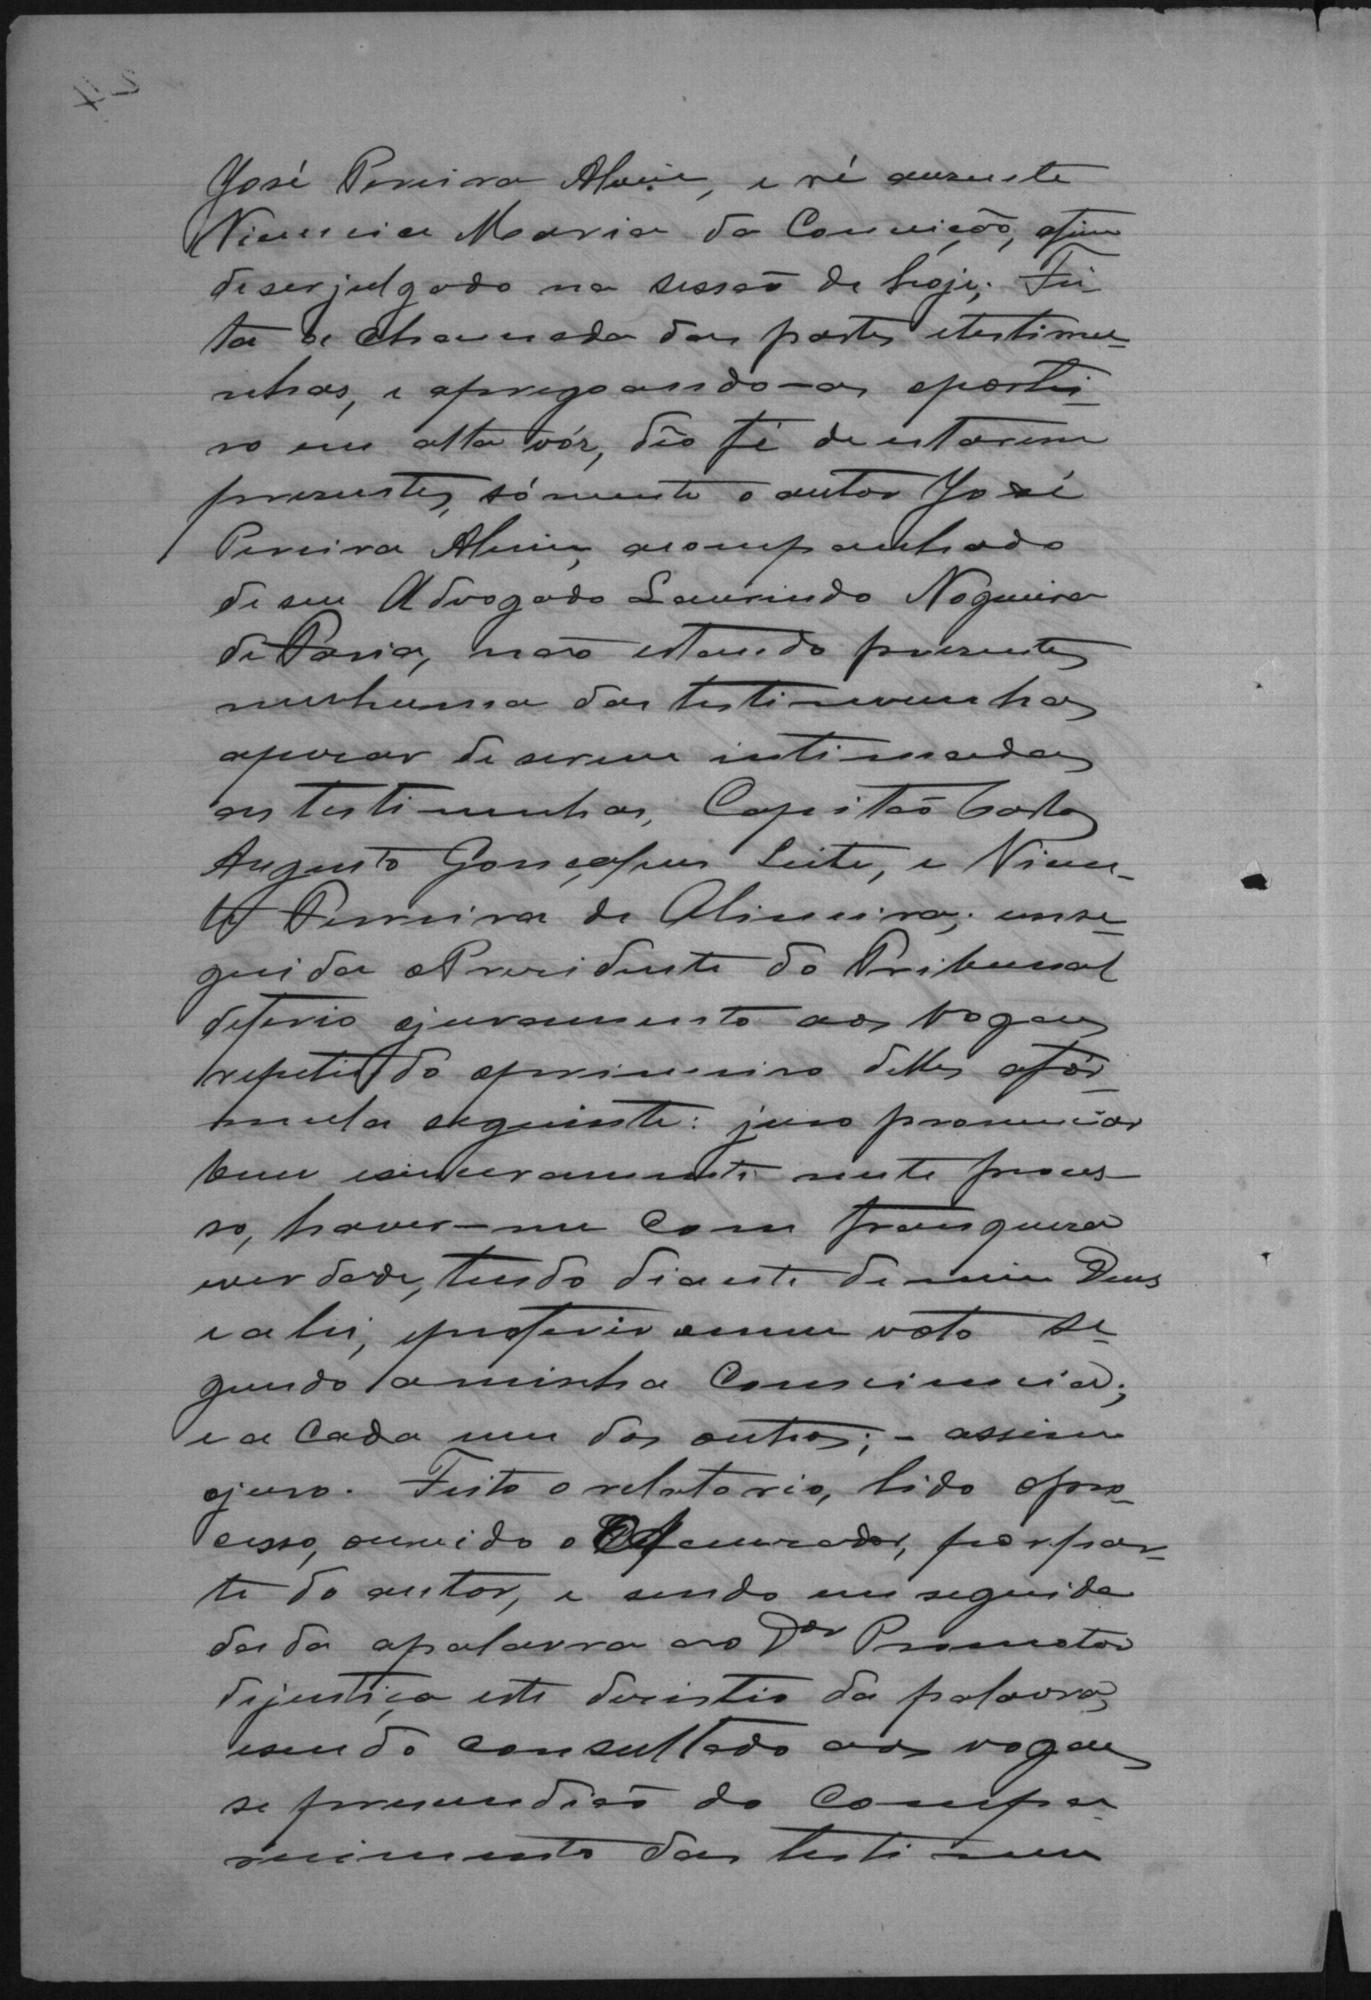 José Pereira Alvim, e ré ausente
Vicencia Maria da Conceição, afim
deserjulgado na sessão de hoje; Fei
ta a chamada das partes etestimu-
nhas, e apregoando-as oportei-
ro em alta vóz, dêo fé de estarem
presentes, sómente o autor José
Pereira Alvim, acompanhado
de seu Advogado Laurindo Nogueira
de Paria, não estando presentes
nenhuma das testimunhas
apezar de serem intimadas
as testimunhas, Capitão Carlos
Augusto Gonçalves Leite, e Vicen-
te Ferreira de Oliveira; emse-
guida o Presidente do Tribunal
deferio ojuramento aos vogaes
repetindo oprimeiro delles afór-
mula seguinte: juro pronunciar
bem esinceramente neste proces-
so, haver-me com franqueza
everdade, tendo diante de mim Deus
e a lei, eproferir omeu voto se-
gundo aminha Consciencia;
e a cada um dos outros; - assim
ojuro. Feito orelatorio, lido opro-
cesso, ouvido o Procurador, porpar-
te do autor, e sendo em seguida
dada apalavra ao Dor Promotor
dejustiça este desistio da palavra,
esendo consultado aos vogaes
se prescindião do Compa-
recimento das testimu